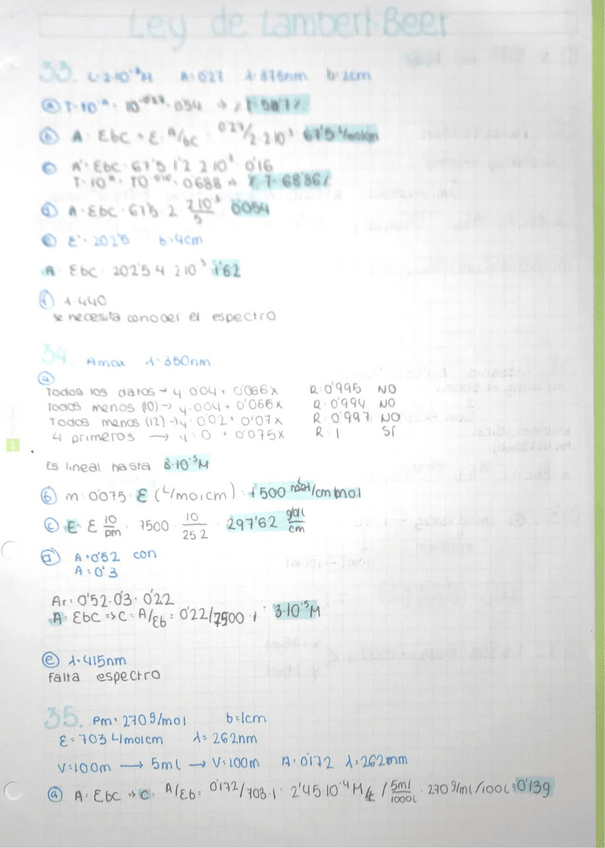 Ley de Lambert-Beer
33. C=2·10⁻³M A=0'27 λ=875nm b=2cm
ⓐ T=10⁻ᴬ = 10⁻⁰'²⁷ = 0'54 → %T=
ⓑ A = Ebc → E = A/bc = 0'27/2·2·10⁻³ = 67'5 L/molcm
ⓒ A = Ebc = 67'5 · 1'2 · 2·10⁻³ = 0'16
T=10⁻ᴬ = 10⁻⁰'¹⁶ = 0'688 → %T=68'8%
ⓓ A = Ebc = 67'5 · 2 · 2·10⁻³/5 = 0'054
ⓔ E = 202'5 b=4cm
A = Ebc = 202'5·4·2·10⁻³ = 1'62
ⓕ λ 440
se necesita conocer el espectro
34. Amax λ=350nm
ⓐ
Todos los datos → y = 0'04 + 0'066x R=0'995 NO
Todos menos (10) → y = 0'04 + 0'066x R=0'994 NO
Todos menos (12) → y = 0'02 + 0'07x R=0'997 NO
4 primeros → y = 0 + 0'075x R=1 SÍ
Es lineal hasta 8·10⁻⁵M
ⓑ m=0'075 = E (L/molcm) =
ⓒ E = E 10/pm = 7500 · 10/252 = 297'62 gdl/cm
ⓓ A=0'52 con
A=0'3
Ar = 0'52-0'3 = 0'22
A = Ebc → C = A/Eb = 0'22/7500·1 = 3·10⁻⁵M
ⓔ λ=415nm
Falta espectro
35. Pm=270g/mol b=1cm
E=703 L/molcm λ=262nm
V=100m → 5ml → V=100m A=0'172 λ=262nm
ⓐ A = Ebc → C = A/Eb = 0'172/703·1 = 2'45·10⁻⁴M / 5ml/1000L · 270g/ml/100L = 0'13g